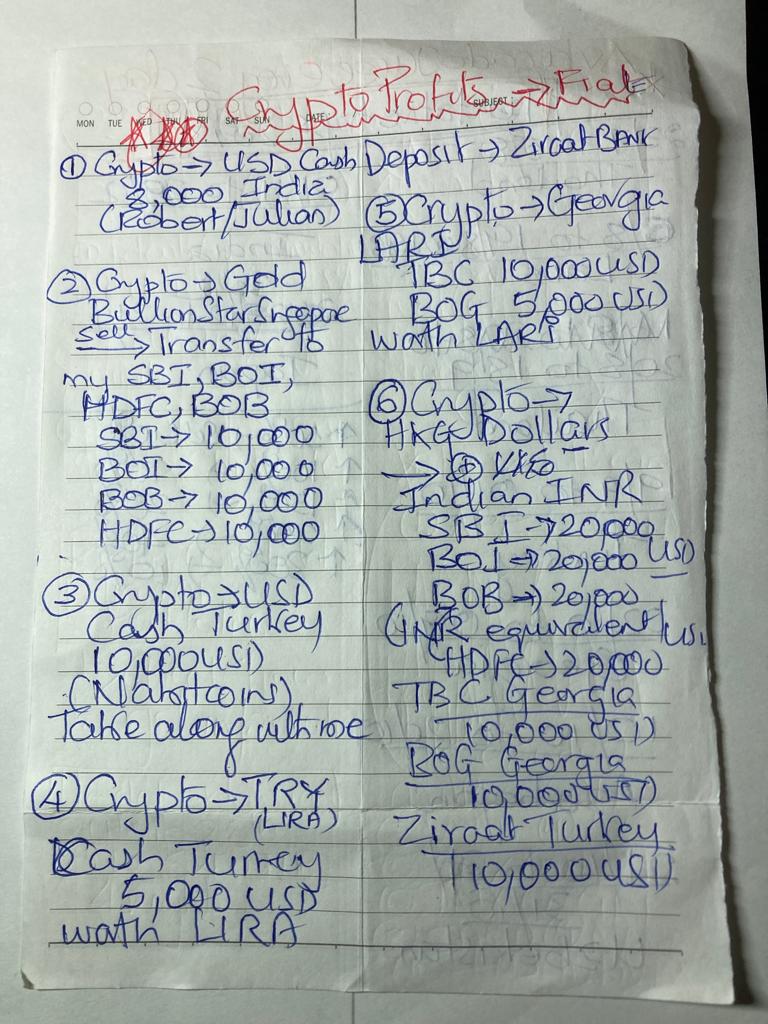 Crypto Profits → Fiat
MON TUE WED THU FRI SAT SUN DATE: SUBJECT:
① Crypto → USD Cash
$,000 India
(Robert/Julian)
② Crypto → Gold
BullionStar
Sell → Transfer to
my SBI, BOI,
HDFC, BOB
SBI → 10,000
BOI → 10,000
BOB → 10,000
HDFC → 10,000
③ Crypto → USD
Cash Turkey
10,000 USD
Take along with me
④ Crypto → TRY
(LIRA)
Cash Turkey
5,000 USD
worth LIRA
Deposit → Ziraat BANK
⑤ Crypto → Georgia
LARI
TBC 10,000 USD
BOG 5,000 USD
worth LARI
⑥ Crypto →
HKG Dollars
→
Indian INR
SBI → 20,000
BOI → 20,000 USD
BOB → 20,000
(INR equivalent/US
HDFC → 20,000
TBC Georgia
10,000 USD
BOG Georgia
10,000 USD
Ziraat Turkey
10,000 USD